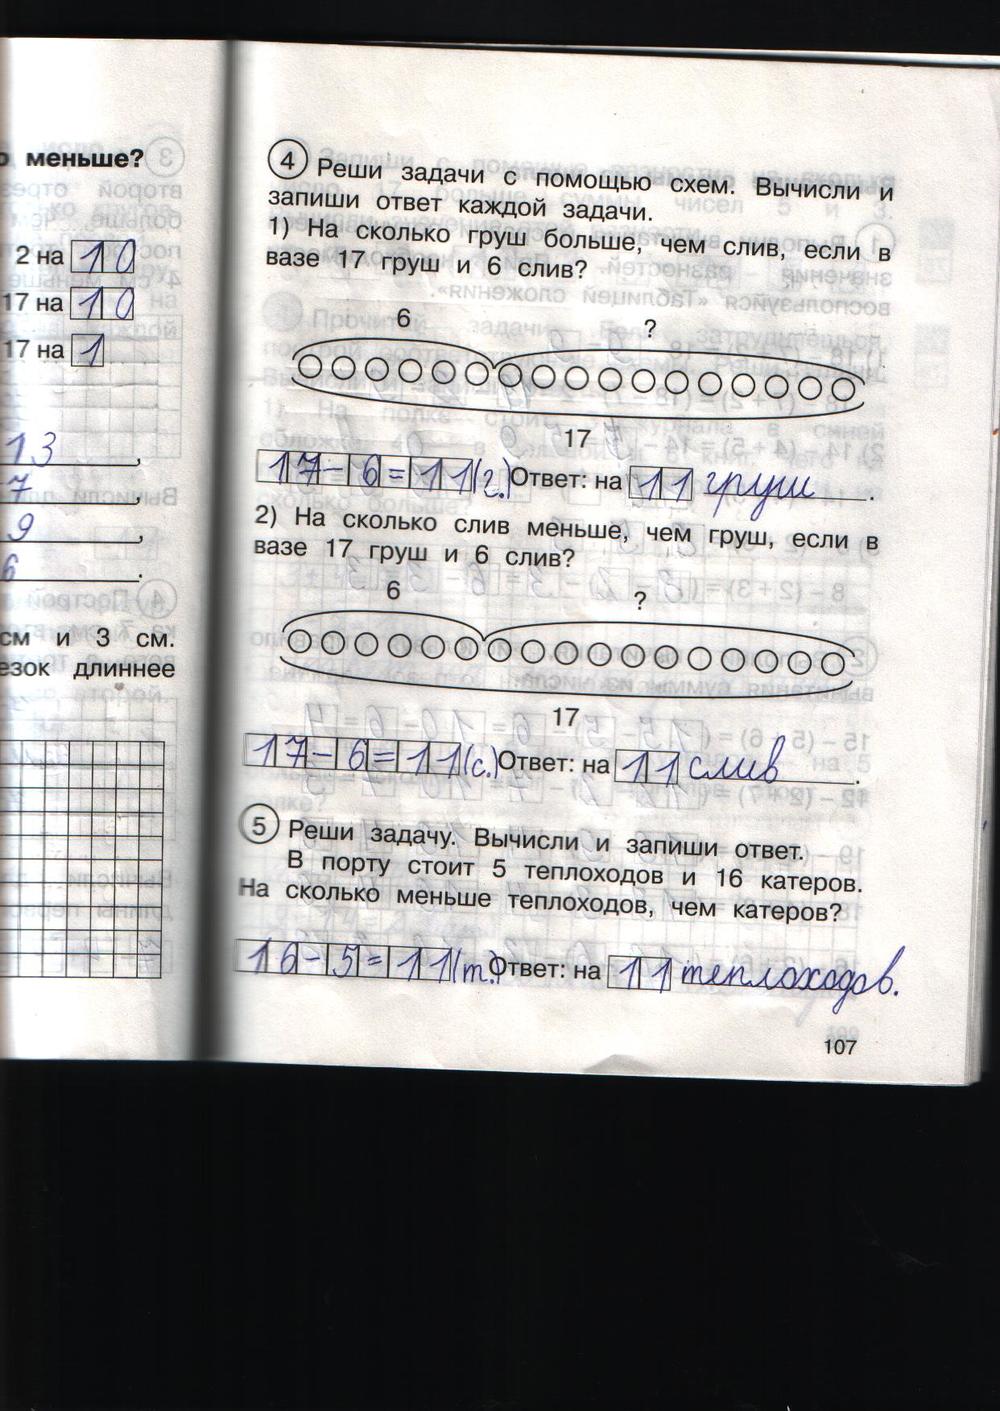 меньше?
2 на 10
17 на 10
17 на 1
13,
7,
9,
6.
см и 3 см.
длиннее
4 Реши задачи с помощью схем. Вычисли и
запиши ответ каждой задачи.
1) На сколько груш больше, чем слив, если в
вазе 17 груш и 6 слив?
6 ?
17
17-6=11(г.) Ответ: на 11 груш.
2) На сколько слив меньше, чем груш, если в
вазе 17 груш и 6 слив?
6 ?
17
17-6=11(с.) Ответ: на 11 слив.
5 Реши задачу. Вычисли и запиши ответ.
В порту стоит 5 теплоходов и 16 катеров.
На сколько меньше теплоходов, чем катеров?
16-5=11(т.) Ответ: на 11 теплоходов.
107